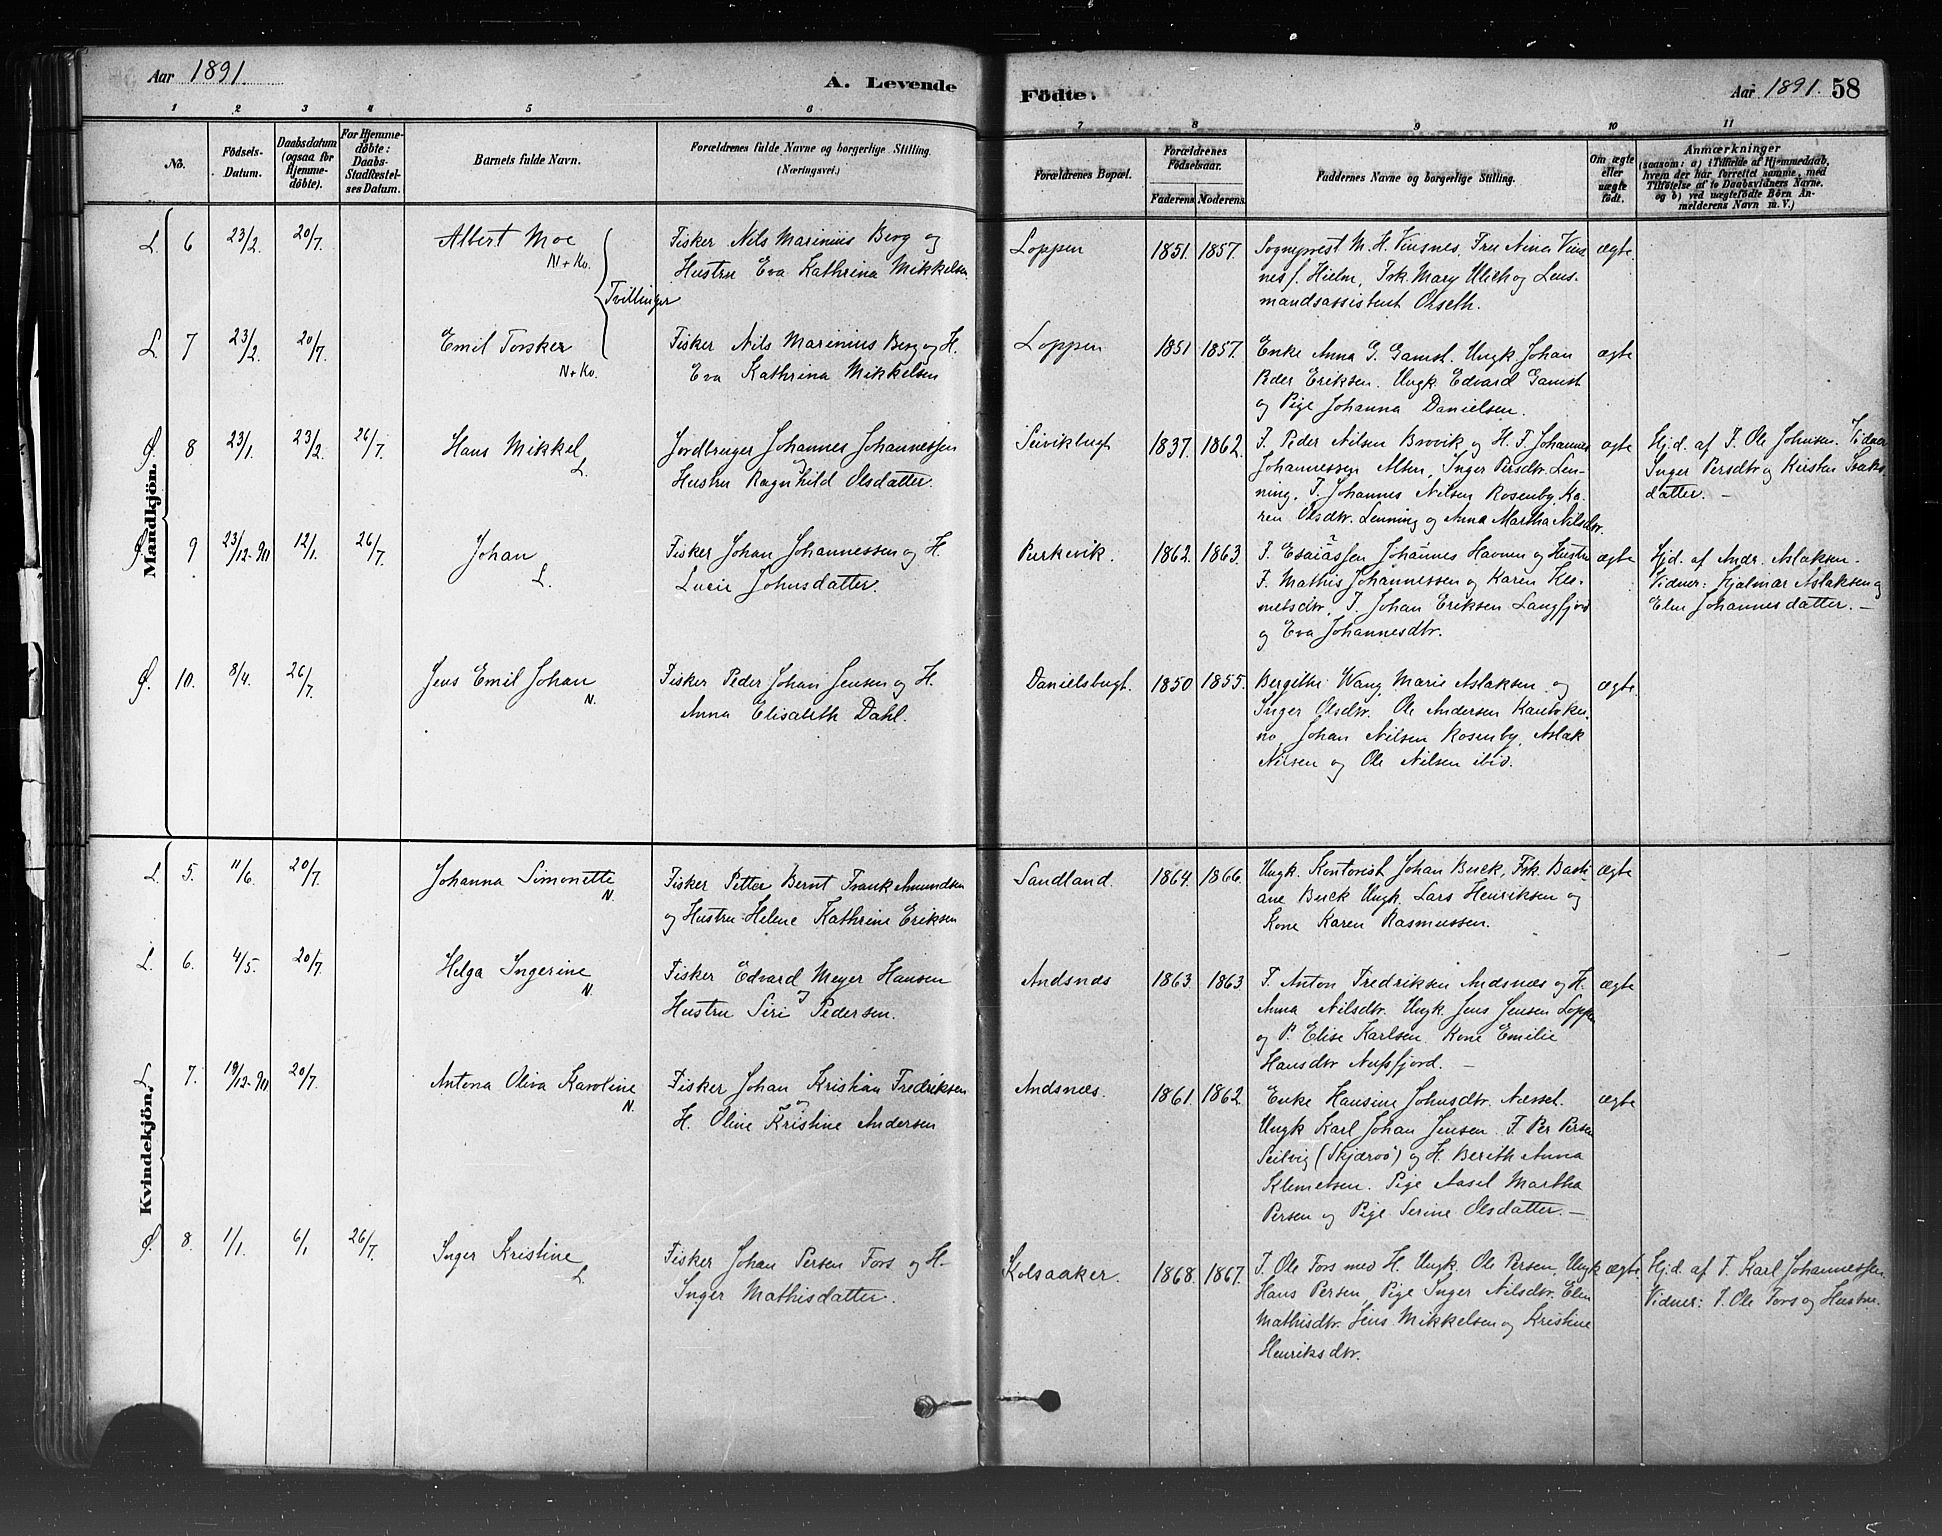 Aar 1891.
A. Levende
Födte.
Aar 1891. 58
1 2 3 4 5 6 7 8 9 10 11
No.
Födsels-
Datum.
Daabsdatum
(ogsaa for
Hjemme-
döbte).
For Hjemme-
döbte:
Daabs-
Stadfæstel-
ses Datum.
Barnets fulde Navn.
Forældrenes fulde Navne og borgerlige Stilling.
(Næringsvei.)
Forældrenes Bopæl.
Forældrenes
Födselsaar.
Faderens Moderens
Faddernes Navne og borgerlige Stilling.
Om ægte
eller
uægte
födt.
Anmærkninger
(saasom: a) i Tilfælde af Hjemmedaab,
hvem der har forrettet samme, med
Tilföielse af to Daabsvidners Navne,
og b) ved uægtefödte Börn An-
melderens Navn m. V.)
Mandkjön.
L. 6 23/2 20/7 Albert Moe
N + Kv.
Tvillinger
Fisker Nils Marinius Berg og
Hustru Eva Kathrina Mikkelsen
Loppen 1851. 1857.
Sogneprest M. H. Vinsnes, Fru Nina Vins-
nes f. Hielm, Frk. Mary Ulich og Lens-
mandsassistent Orseth.
ægte.
L. 7 23/2. 20/7. Emil Torsker
N + Kv.
Fisker Nils Marinius Berg og H.
Eva Kathrina Mikkelsen
Loppen 1851 1857.
Enke Anna G. Gamst. Ungk Johan
Peder Eriksen. Ungk. Edvard Gamst
og Pige Johanna Danielsen.
ægte
Ø. 8 23/1. 23/2. 26/7. Hans Mikkel
L.
Jordbruger Johannes Johannessen
og
Hustru Ragnhild Olsdatter.
Seivikbugt 1837. 1862.
F. Peder Nilsen Brovik og H. F. Johannes
Johannessen Alten, Inger Persdtr. Len-
ning, F. Johannes Nilsen Rosenby, Ka-
ren Olsdtr. Lenning og Anna Martha Nilsdtr.
ægte
Hjd. af F. Ole Johnsen. Vidner
Inger Persdtr og Kirsten Isaks-
datter. —
Ø. 9 23/12-90 12/1. 26/7. Johan
L.
Fisker Johan Johannessen og H.
Lucie Johnsdatter.
Perkevik. 1862. 1863.
F. Esaiassen Johannes Havnen og Hustru
F. Mathis Johannessen og Karen Kle-
metsdtr, F. Johan Eriksen Langfjord
og Eva Johannesdtr.
ægte
Hjd. af Andr. Aslaksen.
Vidner: Hjalmar Aslaksen og
Elen Johannesdatter. —
Ø. 10. 8/4. 26/7. Jens Emil Johan
N.
Fisker Peder Johan Jensen og H.
Anna Elisabeth Dahl.
Danielsbugt. 1850 1855.
Bergithe Wang, Marie Aslaksen og
Inger Olsdtr. Ole Andersen Kautokei-
no, Johan Nilsen Rosenby, Aslak
Nilsen og Ole Nilsen ibid.
ægte.
Kvindekjön.
L. 5. 11/6. 20/7. Johanna Simonette
N.
Fisker Petter Bernt Frank Amundsen
og Hustru Helene Kathrine Eriksen
Sandland. 1864. 1866.
Ungk. Kontorist Johan Buck, Frk. Basti-
ane Buck Ungk. Lars Henriksen og
Kone Karen Rasmussen.
ægte
L. 6. 4/5. 20/7. Helga Ingerine
N.
Fisker Edvard Meyer Hansen
og
Hustru Siri Pedersen.
Andsnæs 1863. 1863.
F. Anton Fredriksen Andsnæs og H.
Anna Nilsdtr. Ungk. Jens Jensen Loppen
og P. Elise Karlsen, Kone Emilie
Hansdtr Nusfjord. —
ægte
L. 7. 19/12-90 20/7. Antona Oliva Karoline
N.
Fisker Johan Kristian Fredriksen
og
H. Oline Kristine Andersen
Andsnæs. 1861. 1862.
Enke Hansine Johnsdtr. Næsset.
Ungk Karl Johan Jensen. F. Per Persen
Seilvig (Skjærvö) og H. Berith Anna
Klemetsen. Pige Aasel Martha
Persen og Pige Serine Olsdatter. —
ægte
Ø. 8. 1/1. 6/1 26/7. Inger Kristine
L.
Fisker Johan Persen Fors og H.
Inger Mathisdatter.
Kolsaaker. 1868. 1867.
F. Ole Fors med H. Ungk. Ole Persen, Ungk
Hans Persen, Pige Inger Nilsdtr. Elen
Mathisdtr. Jens Mikkelsen og Kristine
Henriksdtr.
ægte.
Hjd. af F. Karl Johannessen
Vidner: F. Ole Fors og Hustru.